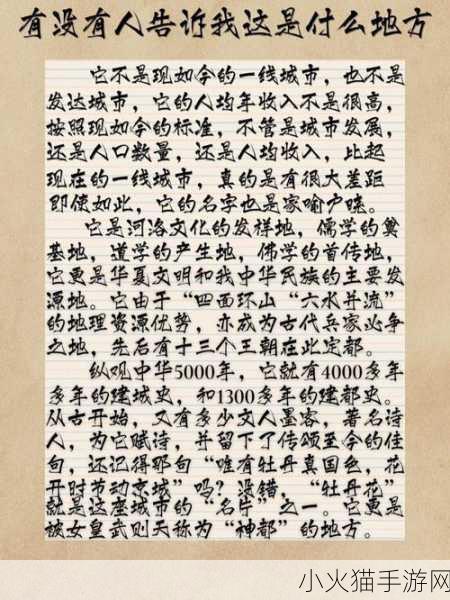 有没有人告诉我这是什么地方
它不是现如今的一线城市，也不是
发达城市，它的人均年收入不是很高，
按照现如今的标准，不管是城市发展，
还是人口数量，还是人均收入，比起
现在的一线城市，真的是有很大差距
即使如此，它的名字也是家喻户晓。
它是河洛文化的发祥地，儒学的奠
基地，道学的产生地，佛学的首传地，
它更是华夏文明和我中华民族的主要发
源地。它由于“四面环山“六水并流”
的地理资源优势，亦成为古代兵家必争
之地，先后有十三个王朝在此定都。
纵观中华5000年，它就有4000多年
多年的建城史，和1300多年的建都史。
从古开始，又有多少文人墨客，著名诗
人，为它赋诗，并留下了传颂至今的佳
句，还记得那句“唯有牡丹真国色，花
开时节动京城”吗？没错，“牡丹花”
就是这座城市的“名片”之一。它更是
被女皇武则天称为“神都”的地方。
小火猫手游网